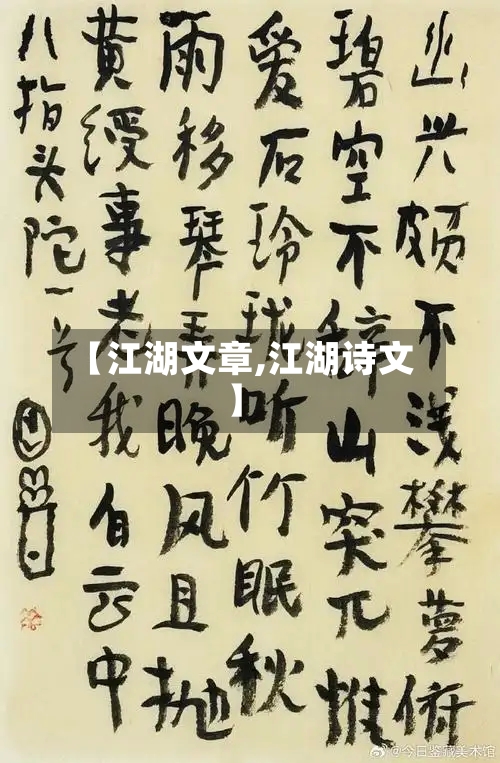 幽兴颇不浅攀萝俯
碧空不辞山突兀惟
爱石玲珑听竹眠秋
雨移琴弄晚风且抛
黄绶事老我白云中
八指头陀一首
【江湖文章,江湖诗文
】
@今日鉴藏美术馆